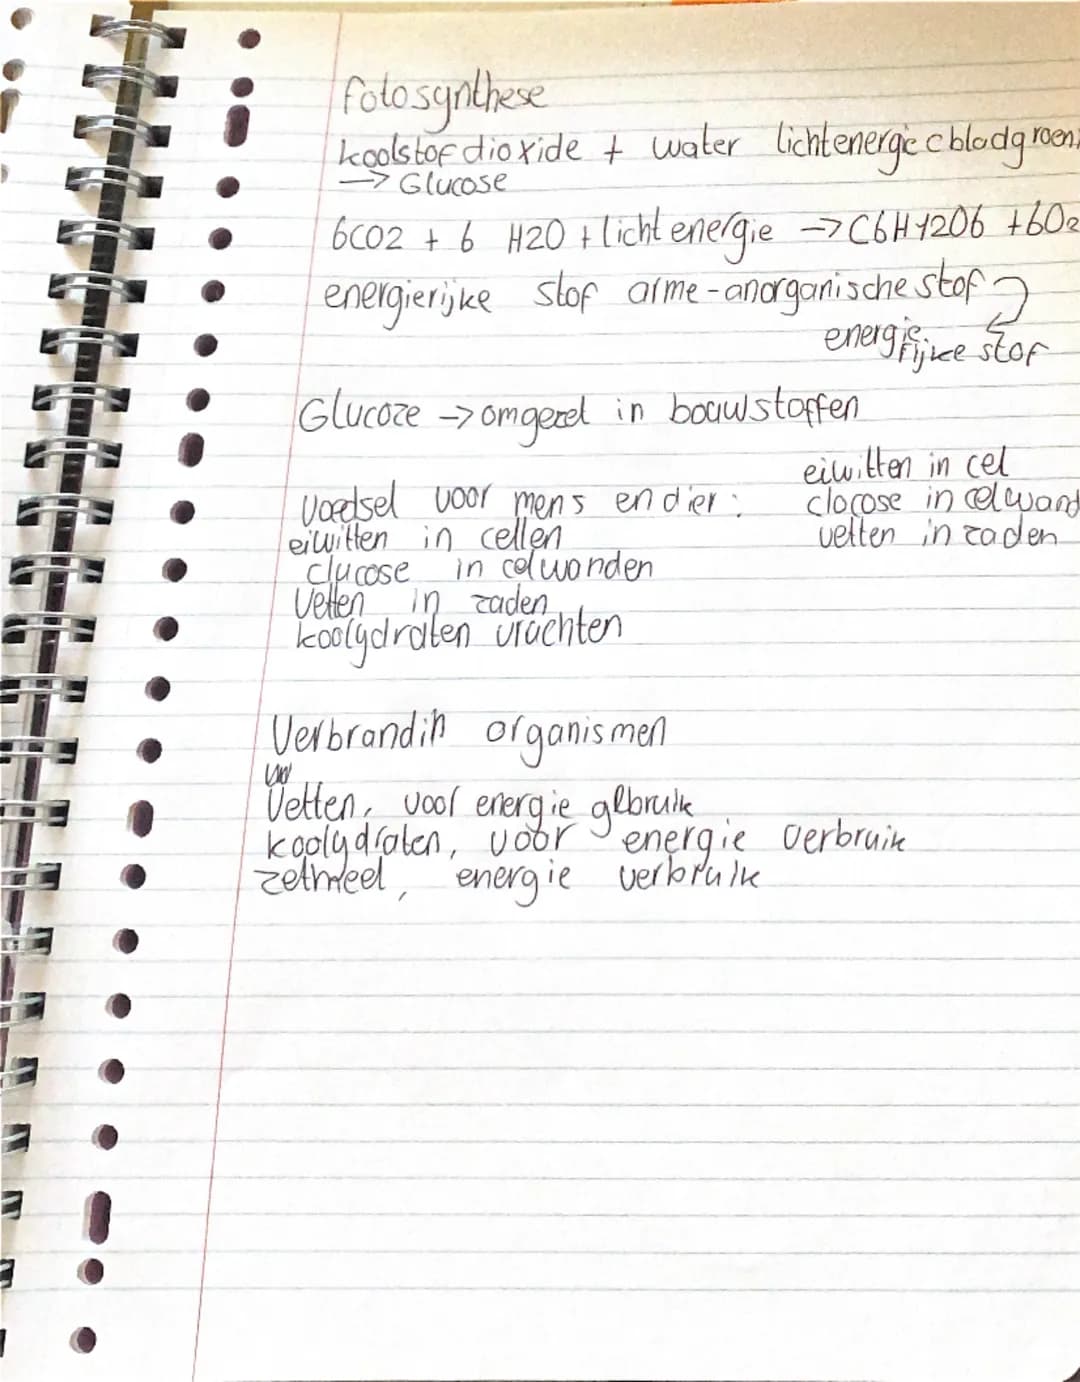 fotosynthese
koolstofdioxide + water lichtenergie c bladgroen
→ Glucose
6CO2 + 6 H2O + lichtenergie → C6H12O6 + 6O2
energierijke stof arme-anorganische stof
energierijke stof
Glucoze → omgezet in bouwstoffen
eiwitten in cel
voedsel voor mens en dier : clocose in celwand
eiwitten in cellen vetten in zaden
clucose in celwanden
Vetten in zaden
koolydraten vruchten
Verbrandin organismen
Vetten, voor energie gebruik
koolydraten, voor energie verbruik
zetmeel, energie verbruik